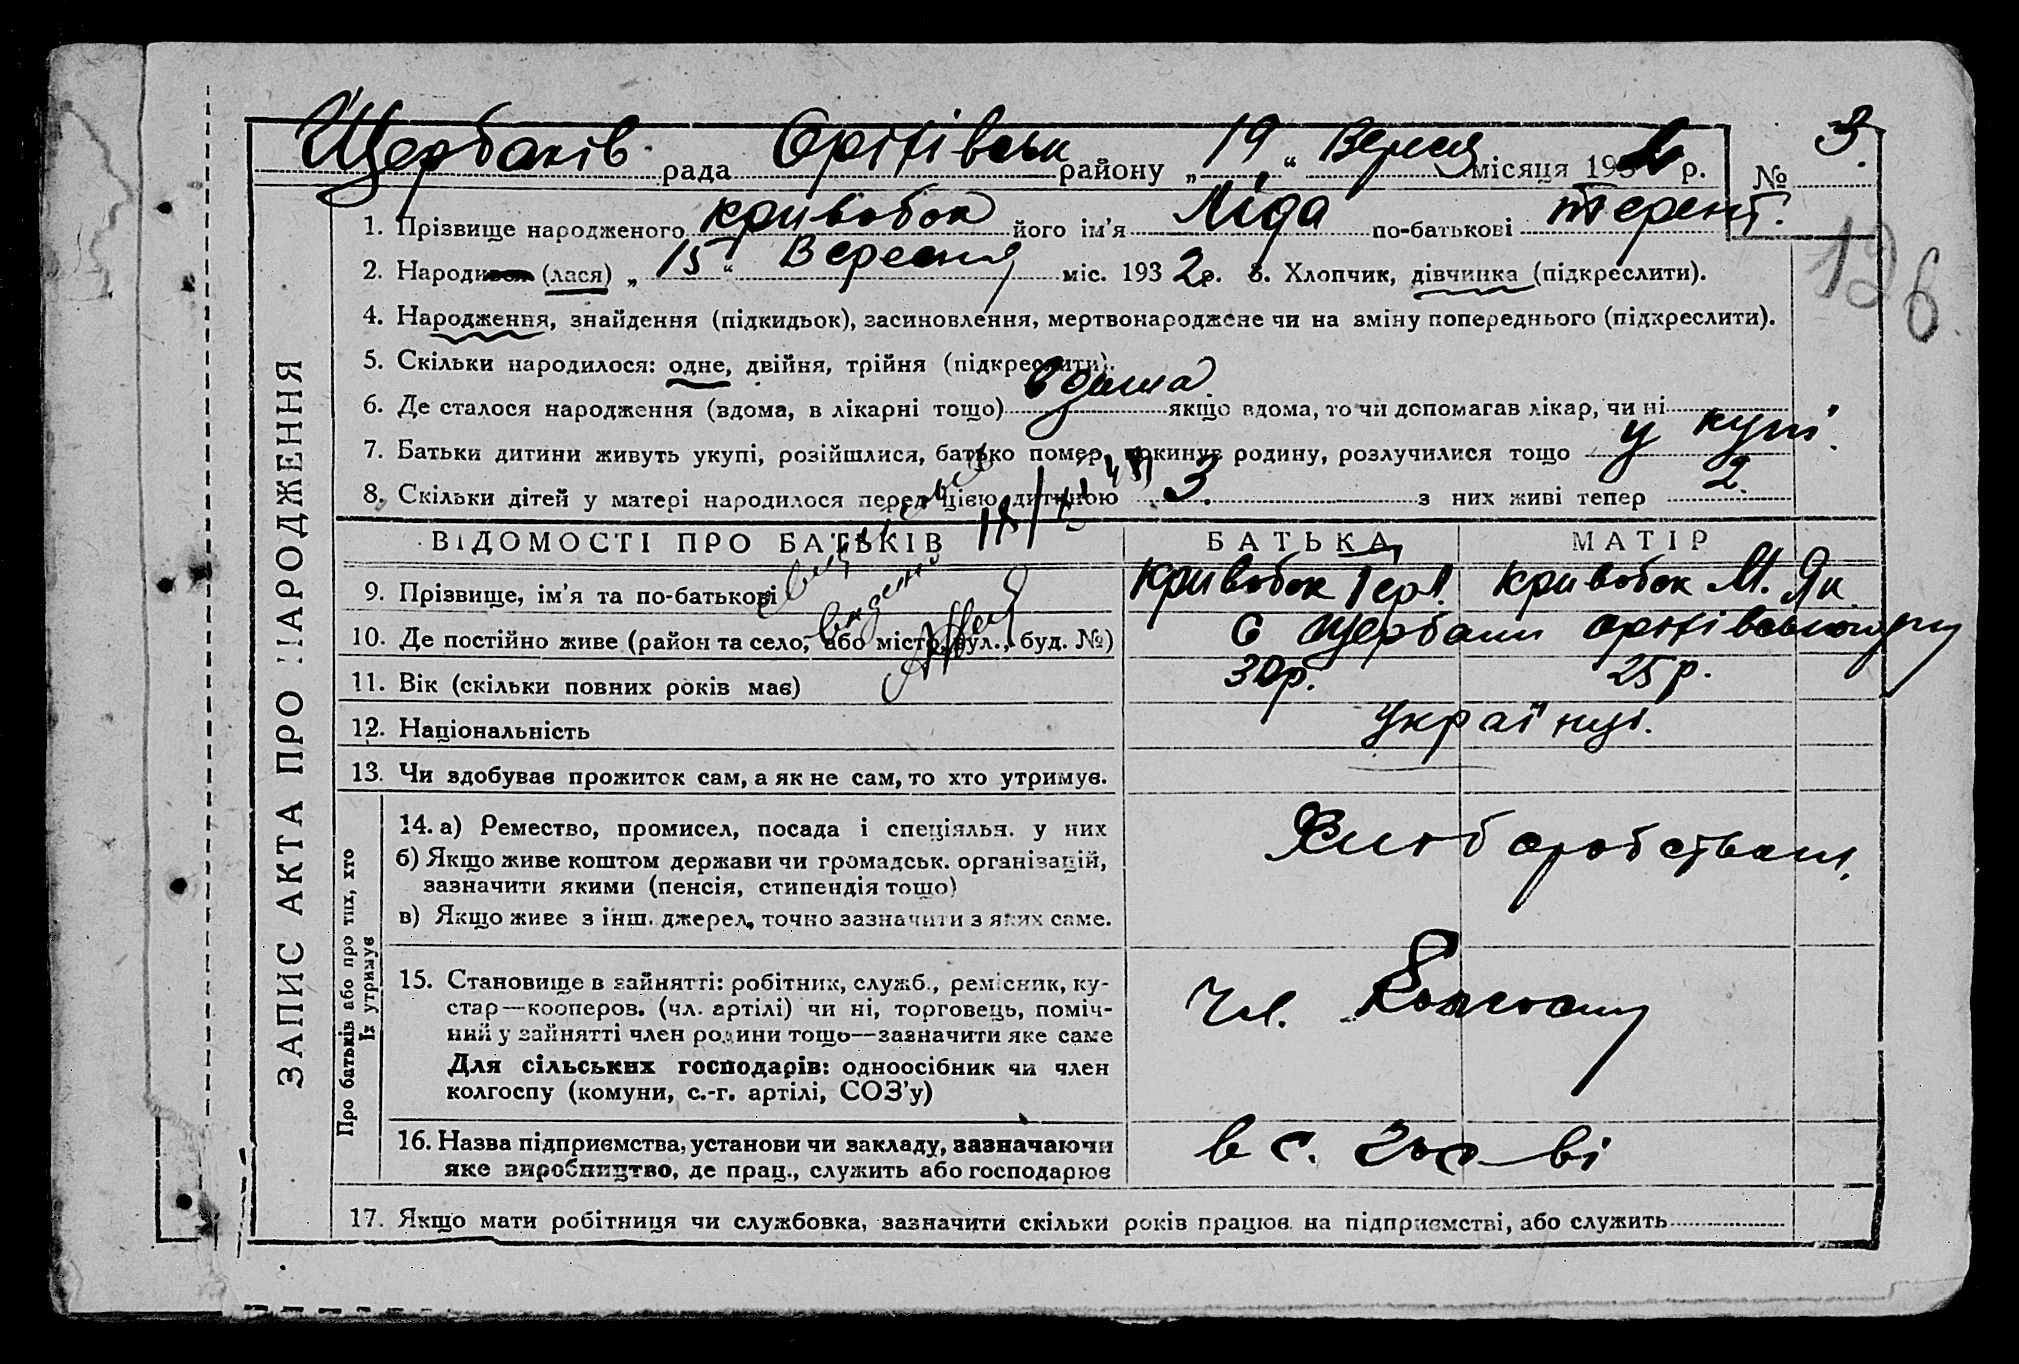 Щербаків рада Оріхівськ району „ 19 “ Вересня місяця 1932 р. № 3.
1. Прізвище народженого Кривобок його ім’я Ліда по-батькові Терент.
126
2. Народився (лася) „ 15 “ Вересня міс. 1932 р. 3. Хлопчик, дівчинка (підкреслити).
4. Народження, знайдення (підкидьок), засиновлення, мертвонароджене чи на зміну попереднього (підкреслити).
5. Скільки народилося: одне, двійня, трійня (підкреслити).
6. Де сталося народження (вдома, в лікарні тощо) вдома якщо вдома, то чи допомагав лікар, чи ні
7. Батьки дитини живуть укупі, розійшлися, батько помер, покинув родину, розлучилися тощо у купі.
8. Скільки дітей у матері народилося перед цією дитиною 3. з них живі тепер 2.
ВІДОМОСТІ ПРО БАТЬКІВ БАТЬКА МАТІР
9. Прізвище, ім’я та по-батькові Кривобок Тер. Кривобок М. Як.
10. Де постійно живе (район та село, або місто, вул., буд. №) С Щербаки Оріхівського р-ну
11. Вік (скільки повних років має) 30 р. 25 р.
12. Національність Українці.
13. Чи здобуває прожиток сам, а як не сам, то хто утримує.
14. а) Ремество, промисел, посада і спеціяльн. у них Хліборобством.
б) Якщо живе коштом держави чи громадськ. організацій,
зазначити якими (пенсія, стипендія тощо)
в) Якщо живе з інш. джерел, точно зазначити з яких саме.
15. Становище в зайнятті: робітник, служб., ремісник, ку-
стар—кооперов. (чл. артілі) чи ні, торговець, поміч-
ний у зайнятті член родини тощо—зазначити яке саме
Чл. Колгоспу
Для сільських господарів: одноосібник чи член
колгоспу (комуни, с.-г. артілі, СОЗ’у)
16. Назва підприємства, установи чи закладу, зазначаючи
яке виробництво, де прац., служить або господарює
в с. гос-ві
17. Якщо мати робітниця чи службовка, зазначити скільки років працює на підприємстві, або служить
ЗАПИС АКТА ПРО НАРОДЖЕННЯ
Про батьків або про тих, хто
їх утримує